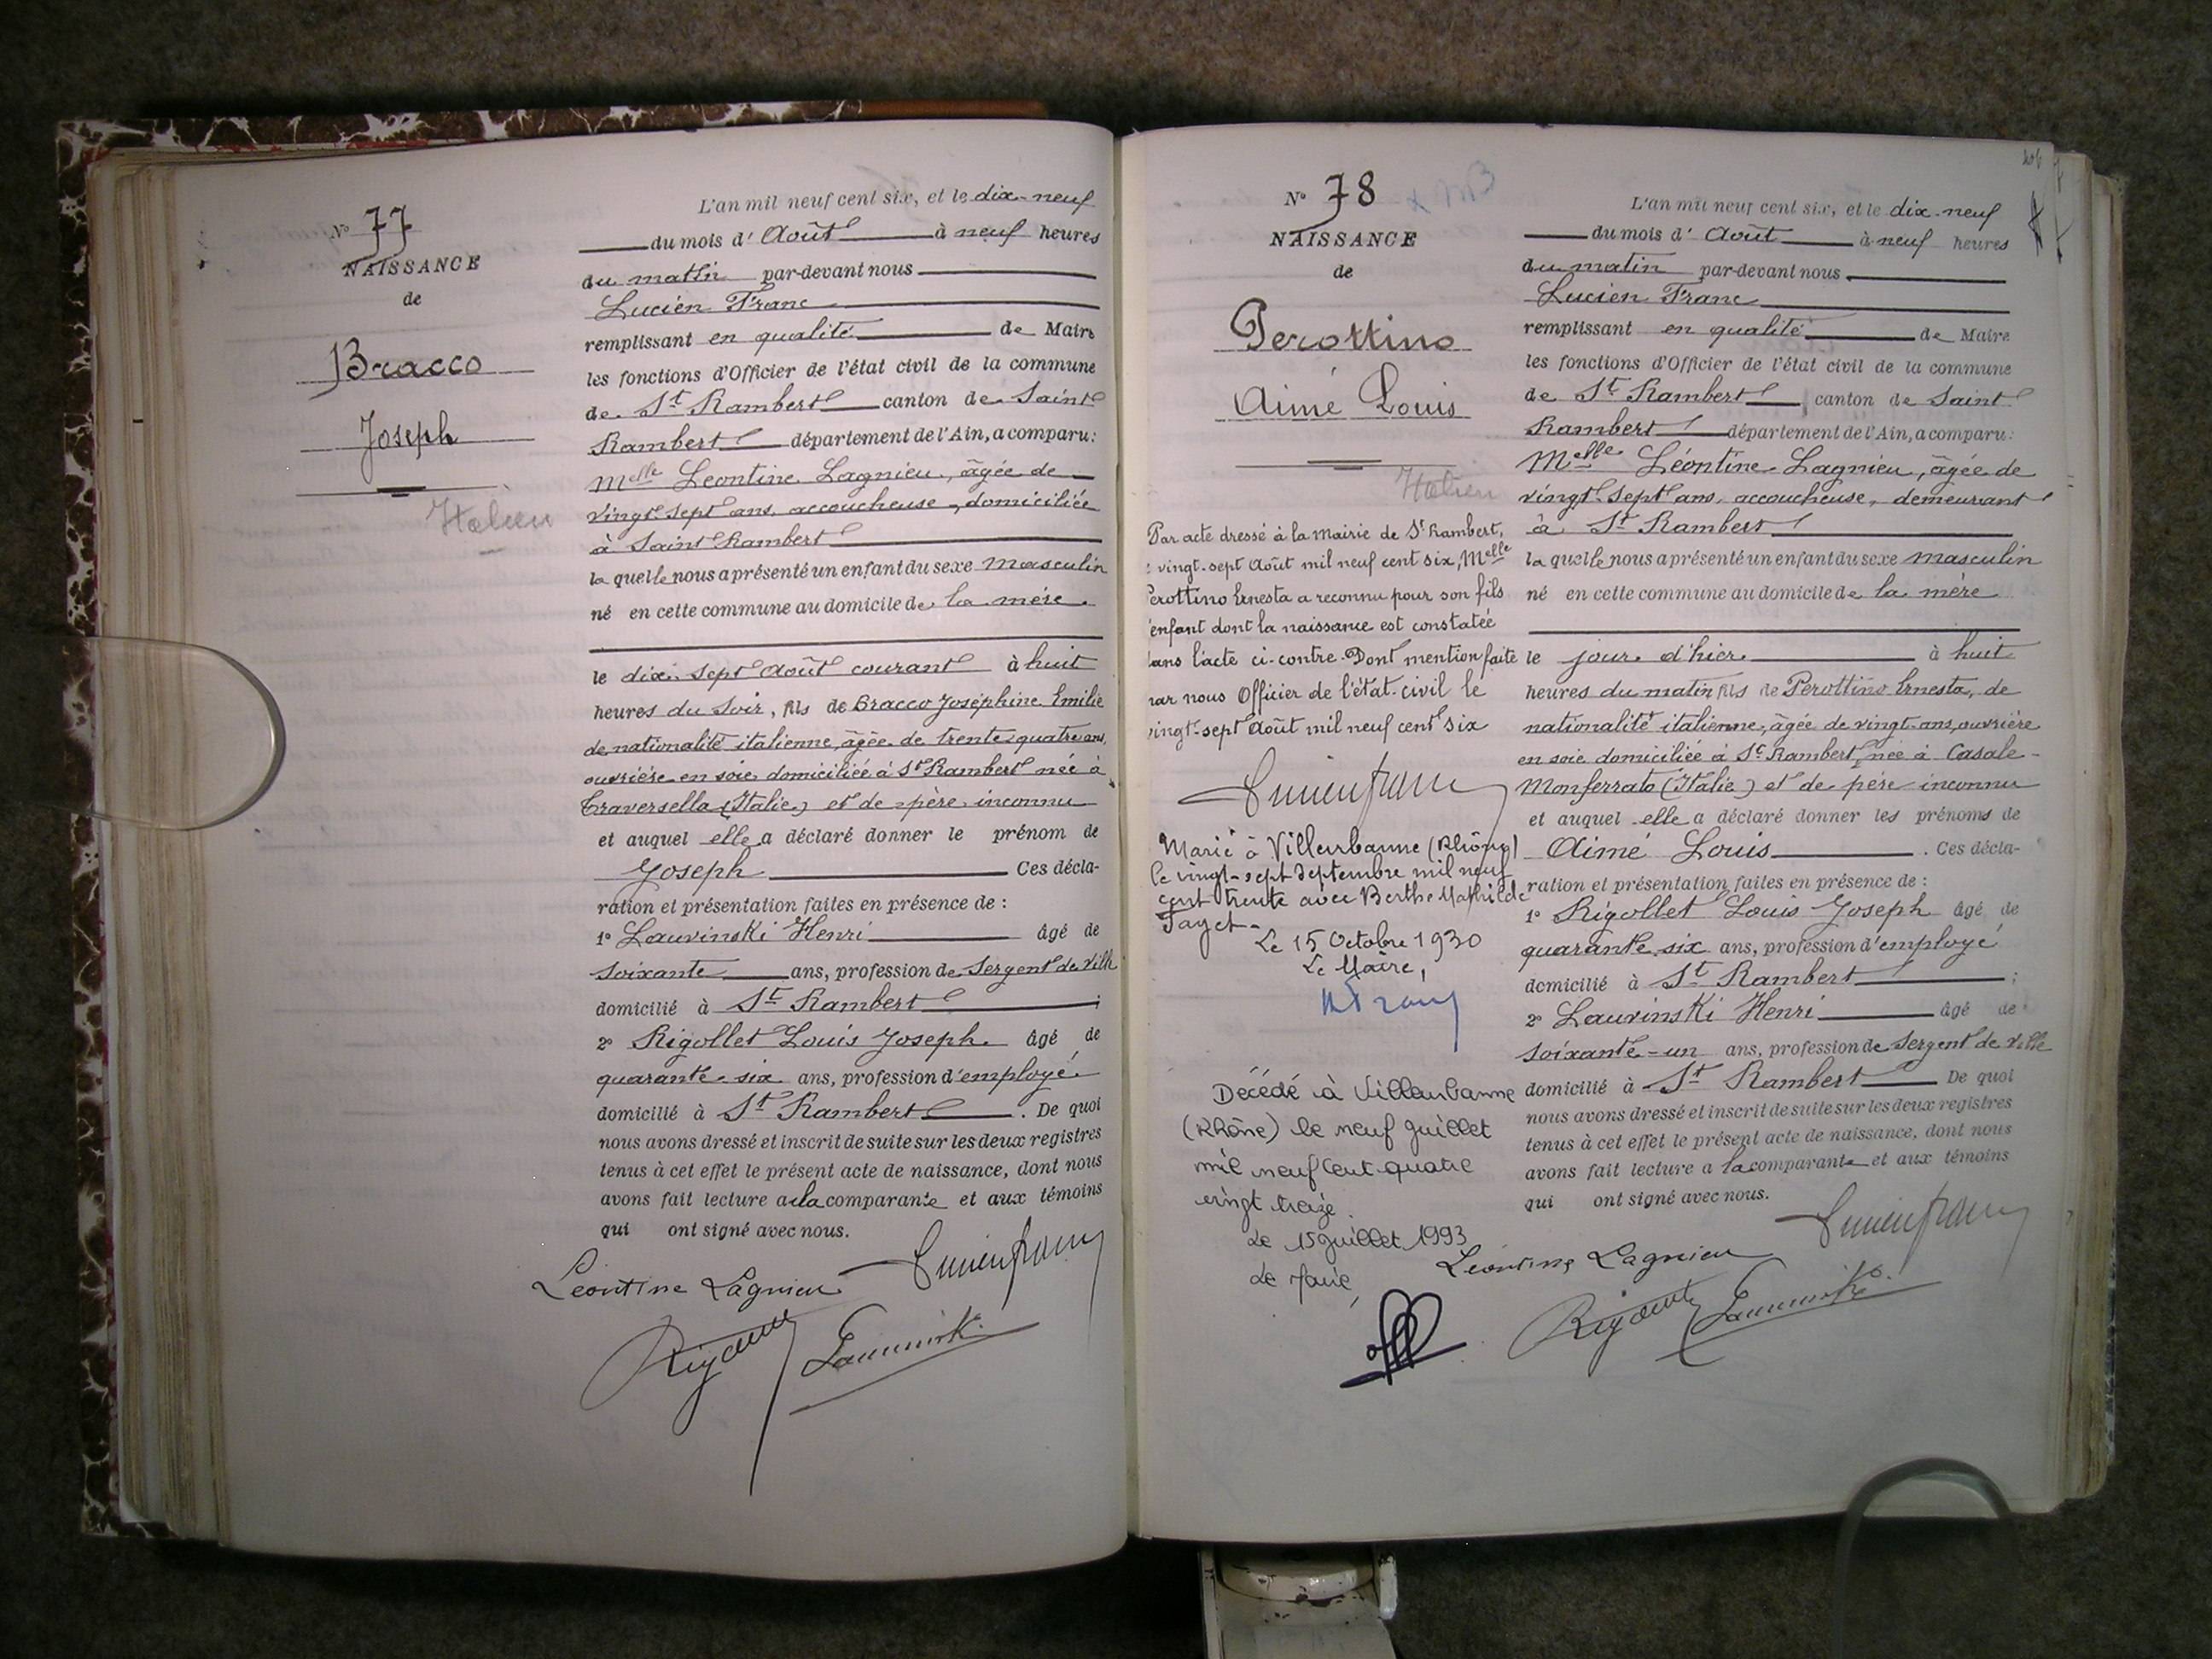 N° 77
NAISSANCE
de
Bracco
Joseph
Italien
L'an mil neuf cent six, et le dix-neuf
du mois d' Août à neuf heures
du matin par-devant nous
Lucien Franc
remplissant en qualité de Maire
les fonctions d'Officier de l'état civil de la commune
de St Rambert canton de Saint
Rambert département de l'Ain, a comparu:
Melle Leontine Lagnieu, âgée de
vingt-sept ans, accoucheuse, domiciliée
à Saint Rambert
laquelle nous a présenté un enfant du sexe masculin
né en cette commune au domicile de la mère
le dix-sept Août courant à huit
heures du soir, fils de Bracco Joséphine Emilie
de nationalité italienne, âgée de trente-quatre ans,
ouvrière en soie domiciliée à St Rambert née à
Traversella (Italie) et de père inconnu
et auquel elle a déclaré donner le prénom de
Joseph Ces décla-
ration et présentation faites en présence de :
1° Lauvinski Henri âgé de
soixante ans, profession de Sergent de Ville
domicilié à St Rambert ;
2° Rigollet Louis Joseph âgé de
quarante-six ans, profession d'employé
domicilié à St Rambert . De quoi
nous avons dressé et inscrit de suite sur les deux registres
tenus à cet effet le présent acte de naissance, dont nous
avons fait lecture à la comparante et aux témoins
qui ont signé avec nous.
Léontine Lagnieu
N° 78
NAISSANCE
de
Perottino
Aimé Louis
Italien
Par acte dressé à la Mairie de St Rambert,
vingt-sept Août mil neuf cent six, Melle
Perottino Ernesta a reconnu pour son fils
enfant dont la naissance est constatée
dans l'acte ci-contre. Dont mention faite
par nous Officier de l'état-civil le
vingt-sept Août mil neuf cent six
Marié à Villeurbanne (Rhône)
le vingt-sept Septembre mil neuf
cent trente avec Berthe Mathilde
Le 15 Octobre 1930
Le Maire,
Décédé à Villeurbanne
(Rhône) le neuf juillet
mil neuf cent quatre
vingt treize.
Le 15 juillet 1993
Le Maire,
L'an mil neuf cent six, et le dix-neuf
du mois d' Août à neuf heures
du matin par-devant nous
Lucien Franc
remplissant en qualité de Maire
les fonctions d'Officier de l'état civil de la commune
de St Rambert canton de Saint
Rambert département de l'Ain, a comparu:
Melle Léontine Lagnieu, âgée de
vingt-sept ans, accoucheuse, demeurant
à St Rambert
laquelle nous a présenté un enfant du sexe masculin
né en cette commune au domicile de la mère
le jour d'hier à huit
heures du matin fils de Perottino Ernesta, de
nationalité italienne, âgée de vingt ans, ouvrière
en soie domiciliée à St Rambert, née à Casale-
Monferrato (Italie) et de père inconnu
et auquel elle a déclaré donner les prénoms de
Aimé Louis . Ces décla-
ration et présentation faites en présence de :
1° Rigollet Louis Joseph âgé de
quarante-six ans, profession d'employé
domicilié à St Rambert ;
2° Lauvinski Henri âgé de
soixante-un ans, profession de Sergent de ville
domicilié à St Rambert De quoi
nous avons dressé et inscrit de suite sur les deux registres
tenus à cet effet le présent acte de naissance, dont nous
avons fait lecture à la comparante et aux témoins
qui ont signé avec nous.
Léontine Lagnieu